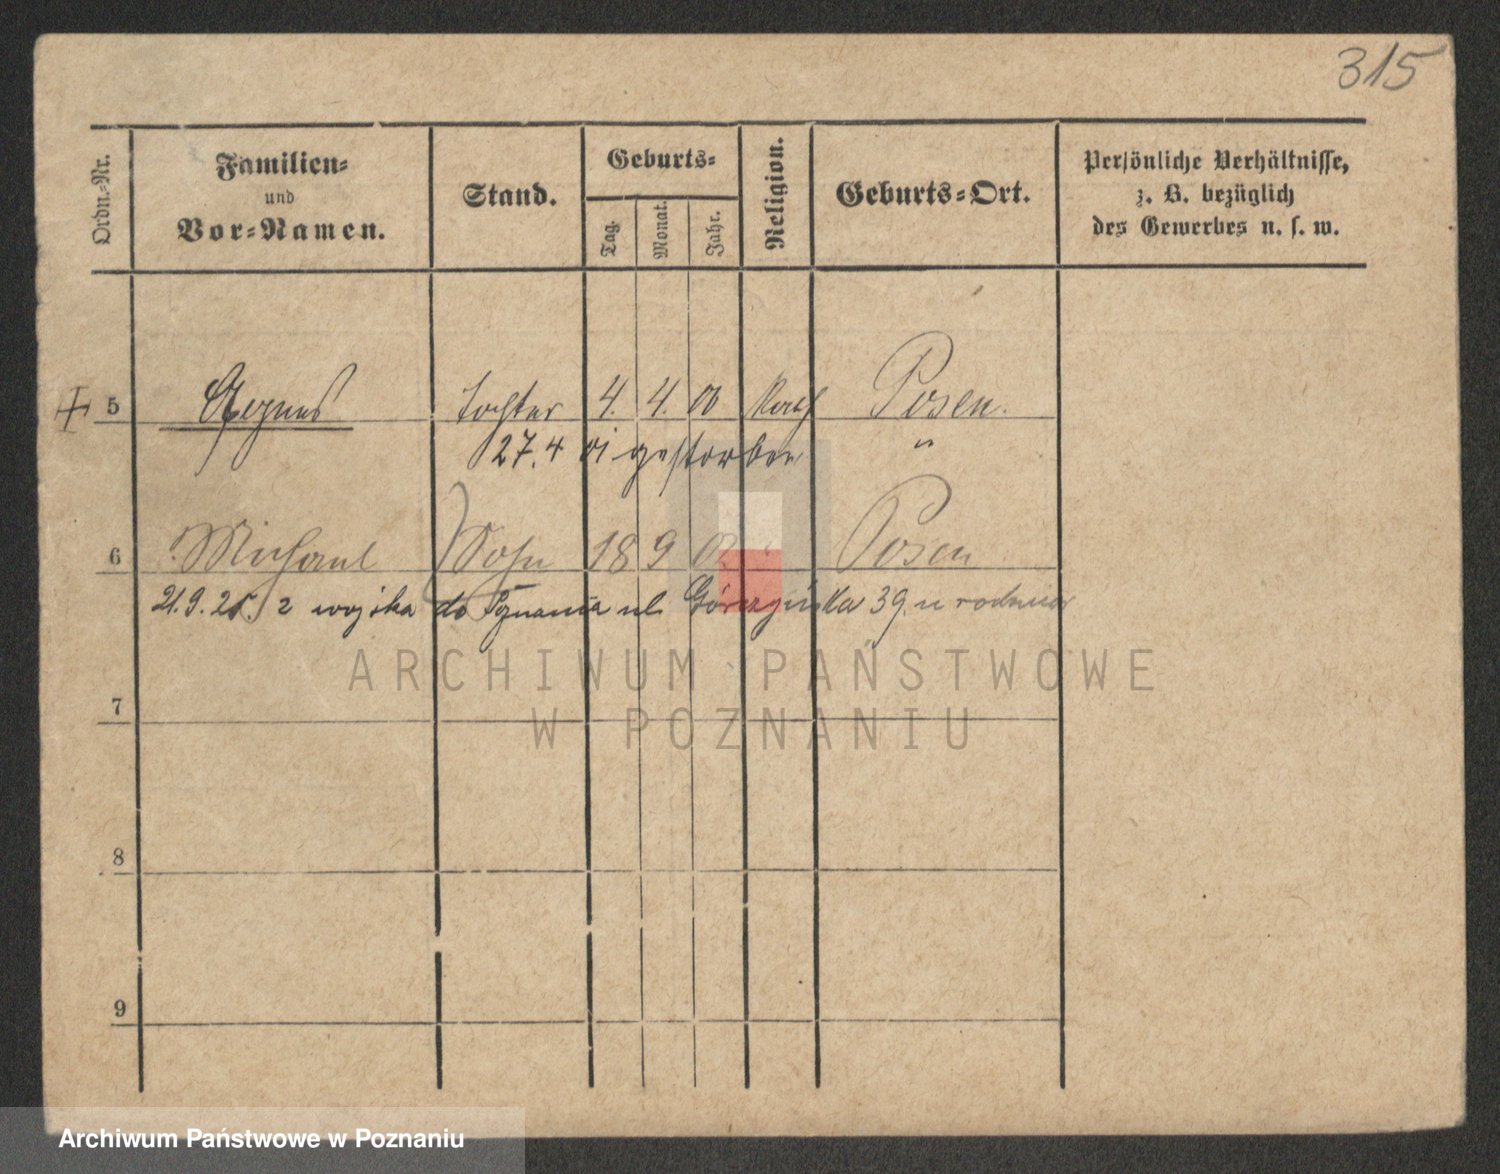 315
Ordn.-Nr. Familien- und Vor-Namen. Stand. Geburts- Tag. Monat. Jahr. Religion. Geburts-Ort. Persönliche Verhältnisse, z. B. bezüglich des Gewerbes u. s. w.
5 Agnes Tochter 4. 4. 00 Kath Posen.
27. 4 01 gestorben "
6 Michael Sohn 18 9 02 " Posen
21. 9. 25. z wojska do Poznania ul. Górczyńska 39. u rodziców
7
8
9
ARCHIWUM PAŃSTWOWE
W POZNANIU
Archiwum Państwowe w Poznaniu